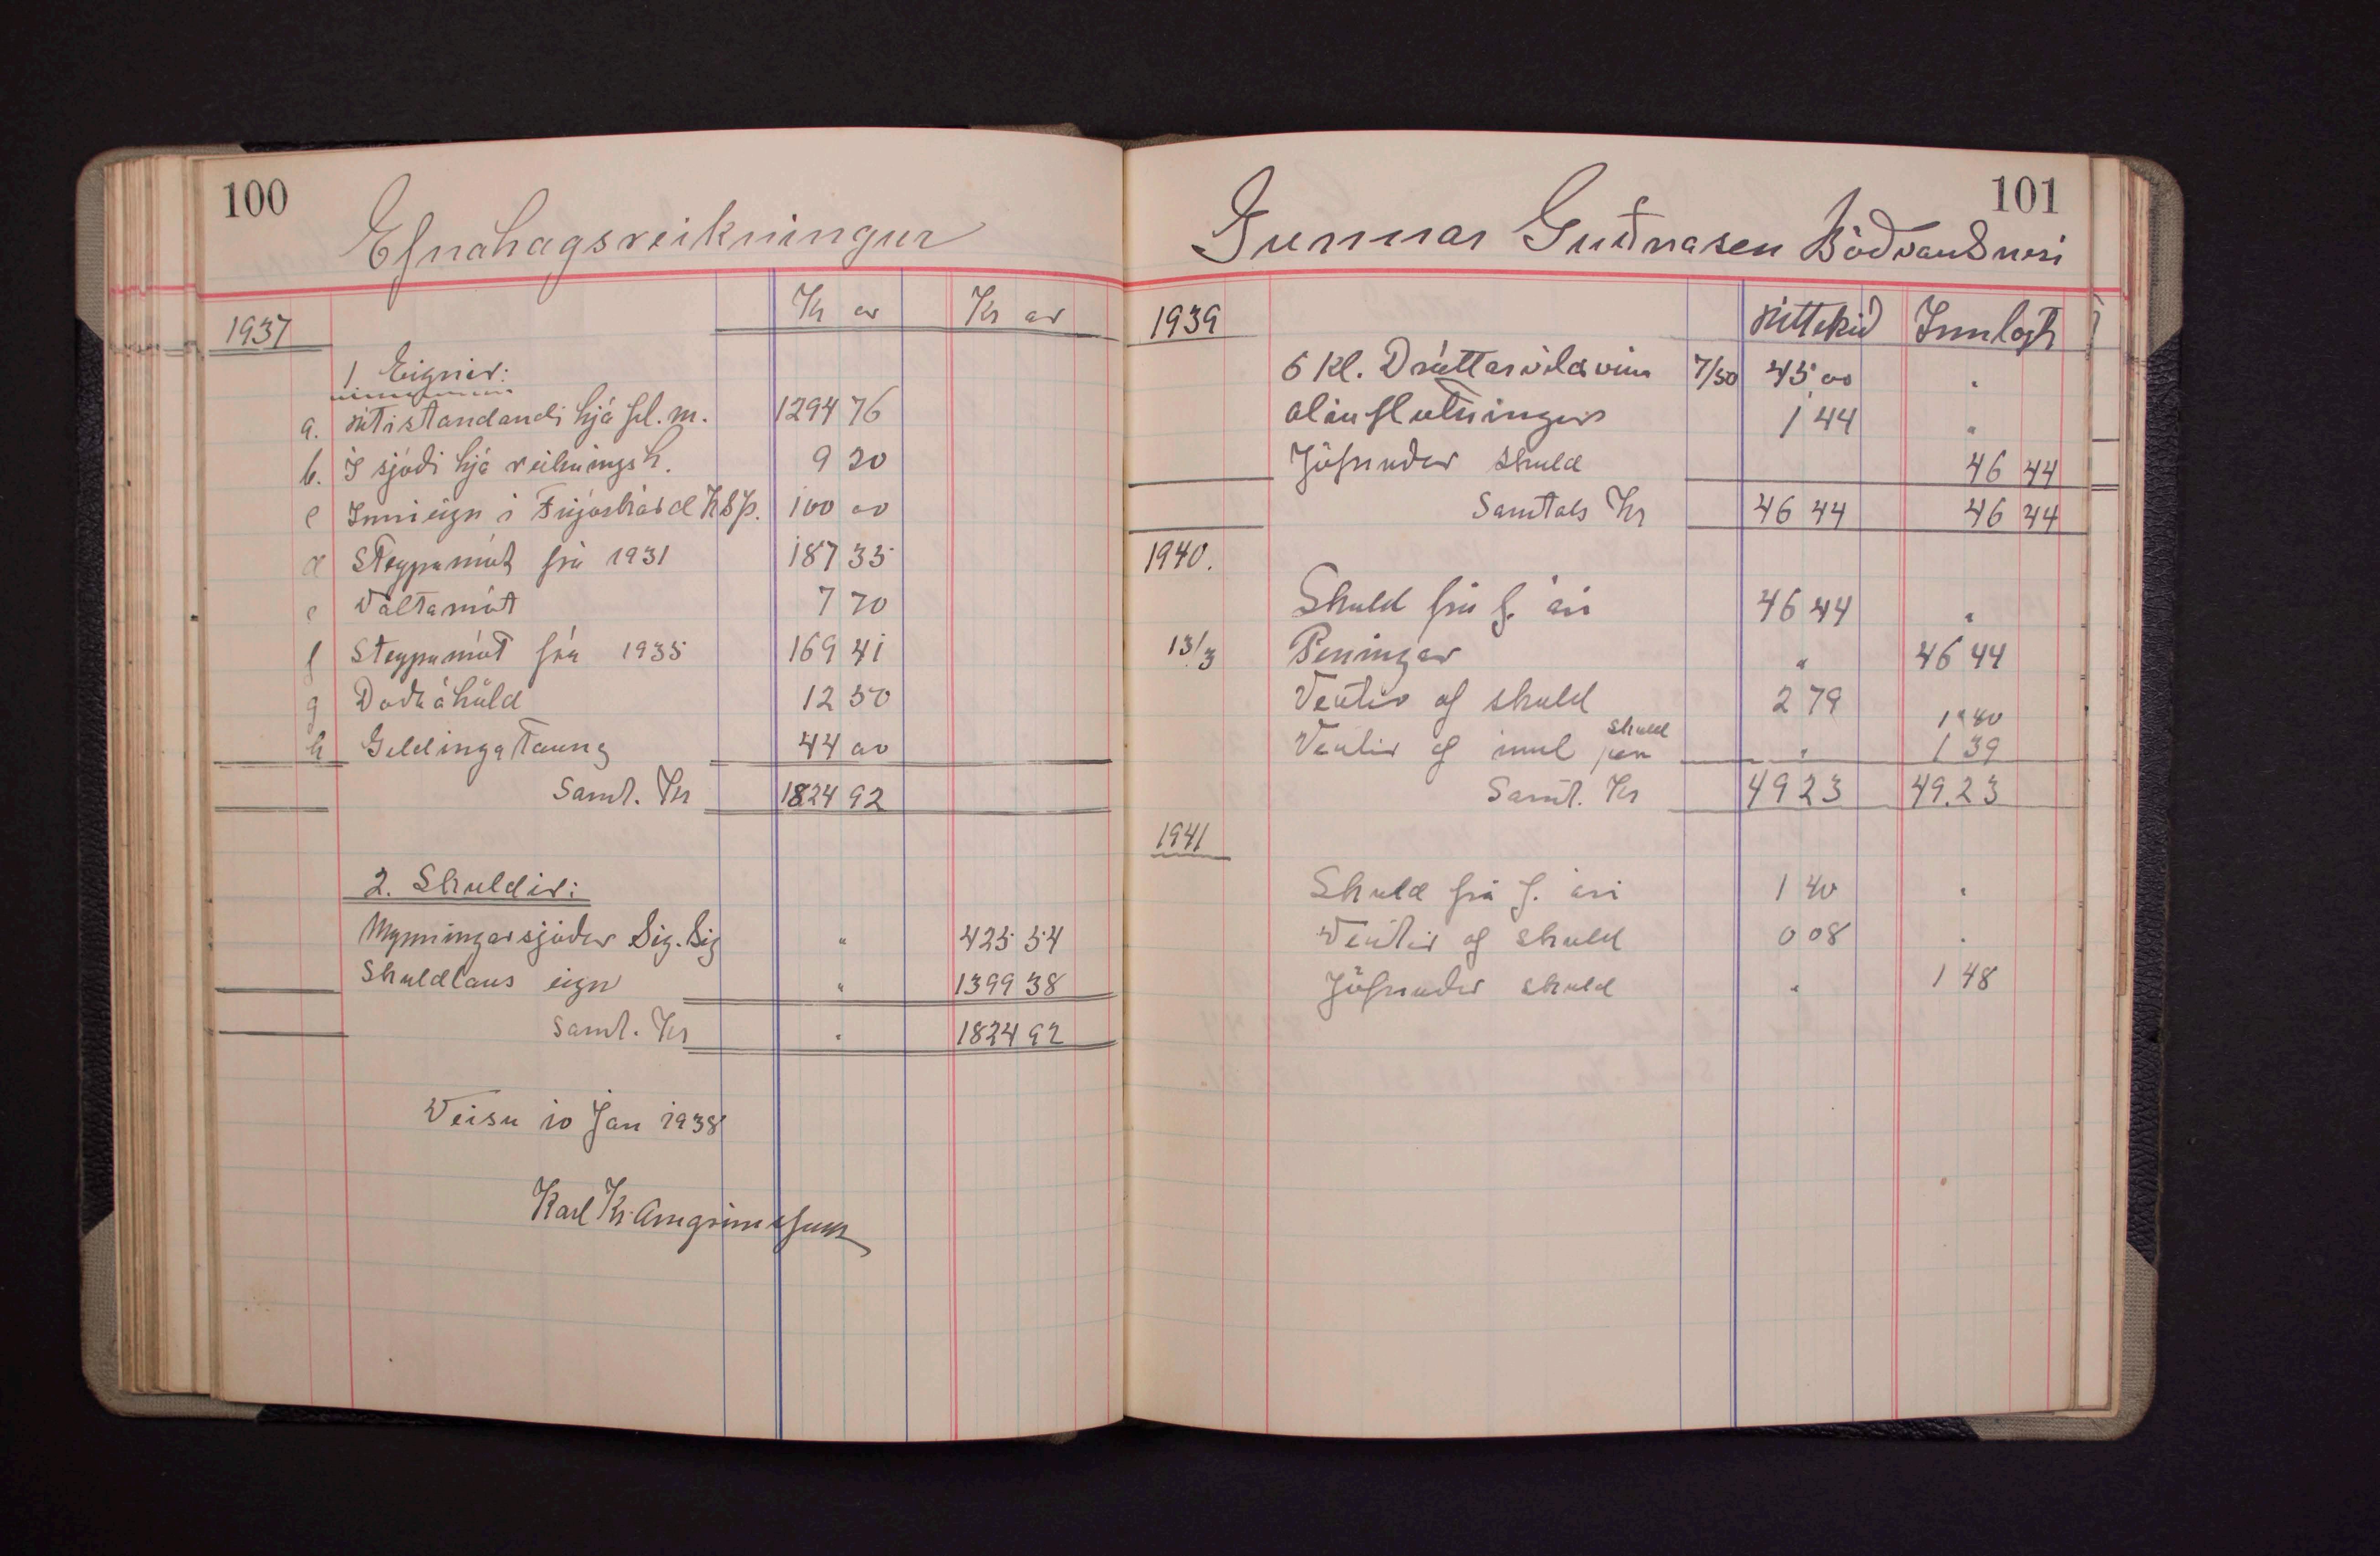 100
Efnahagsreikningur
Kr ar Kr ar
1937
1 Eignir:
a. Útistandandi hjá fél. m. 1294 76
b. Í sjóði hjá reikningsh. 9 20
c Inneign í K S Þ. 100 00
d Steypumót frá 1931 187 35
e Valtamót 7 70
f Steypumót frá 1935 169 41
g áhöld 12 50
h Geldingataung 44 00
Samt. Kr 1824 92
2. Skuldir:
Mynningarsjóður Sig. Sig " 425 54
Skuldlaus eign " 1399 38
Samt. Kr " 1824 92
Veisu 10 Jan 1938
Karl Kr. Arngrímsson
101
Gunnar Guðnason Böðvarsnesi
1939 Úttekið Innlagt
6 kl. 7/50 45 00 "
1 44 "
Jöfnuður skuld 46 44
Samtals Kr 46 44 46 44
1940.
Skuld frá f. ári 46 44 "
13/3 Peningar " 46 44
Vextir af skuld 2 79 1 40
skuld
Vextir af innl " 1 39
Samt. Kr 49 23 49.23
1941
Skuld frá f. ári 1 40 "
Vextir af skuld 0 08 "
Jöfnuður skuld " 1 48